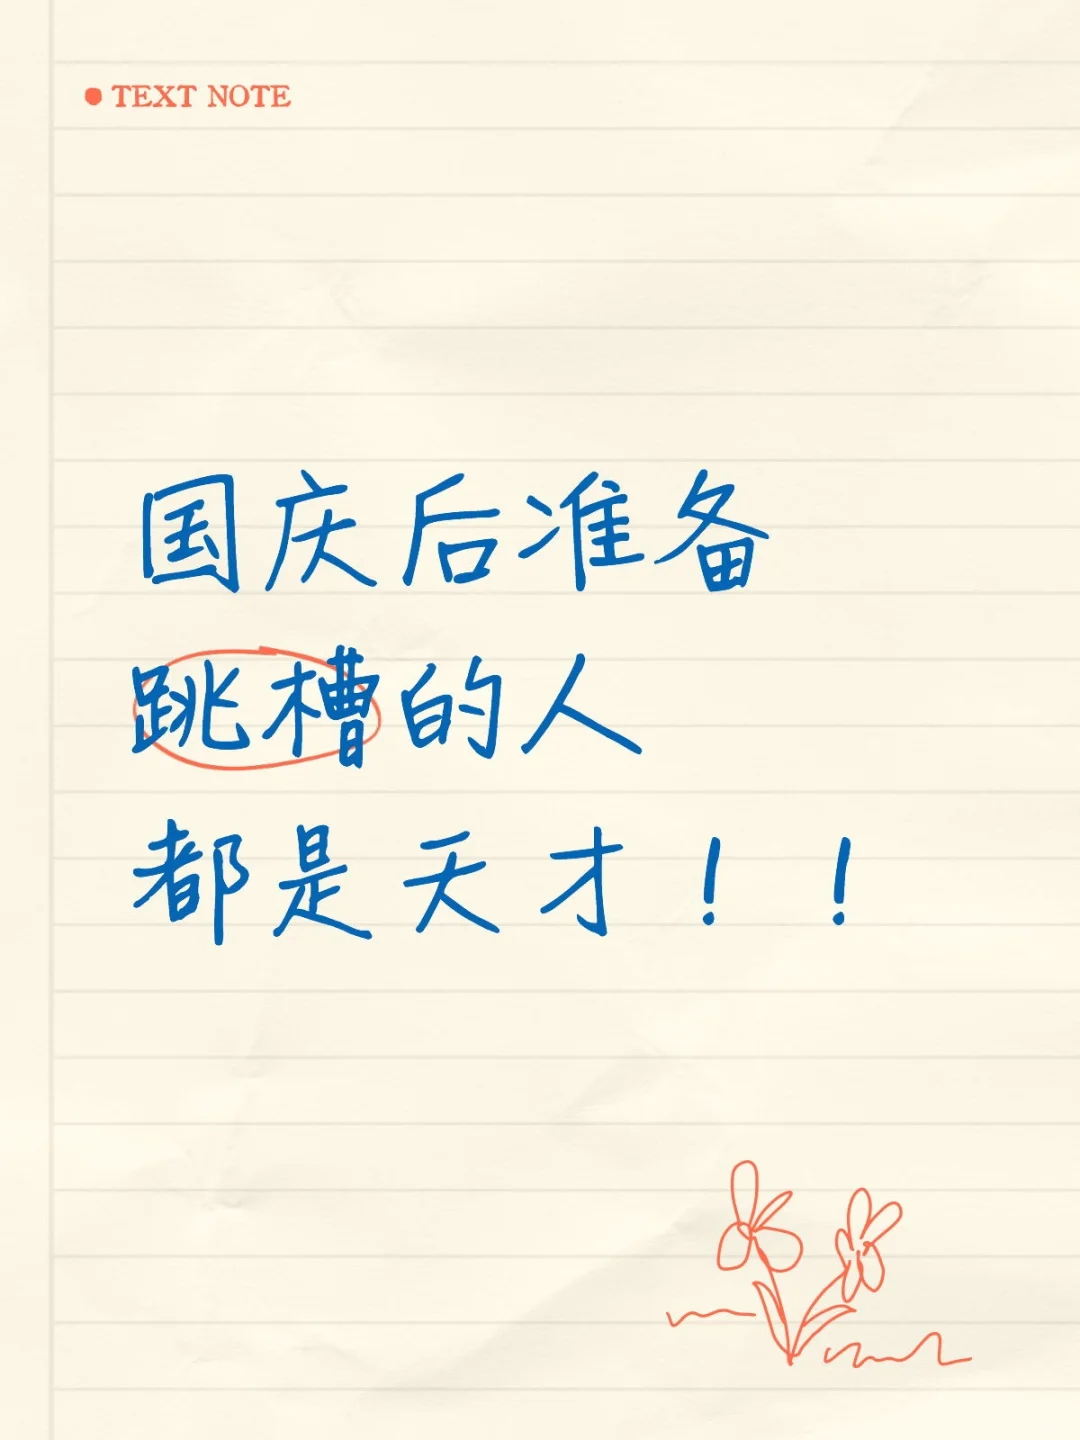 TEXT NOTE
国庆后准备
跳槽的人
都是天才！！